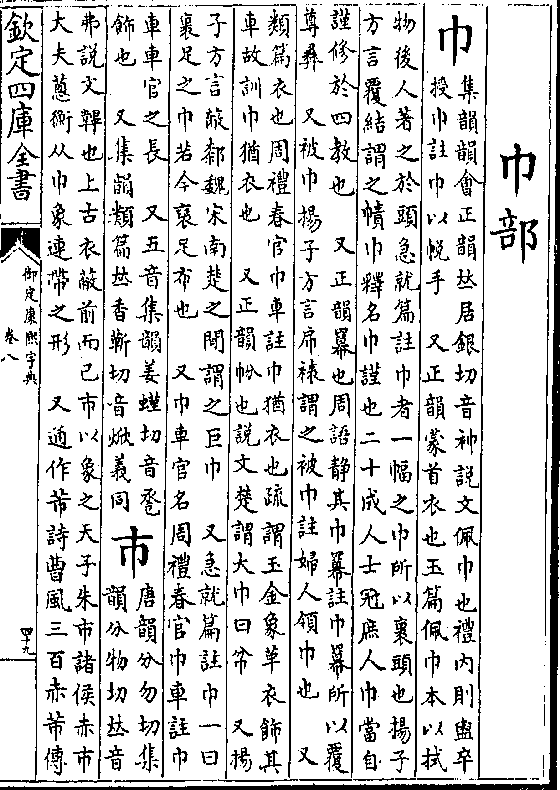 巾部
巾
集韻韻會正韻𠀤居銀切音神說文佩巾也禮內則盥卒
授巾註巾以帨手 又正韻蒙首衣也玉篇佩巾本以拭
物後人著之於頭急就篇註巾者一幅之巾所以裹頭也揚子
方言覆結謂之幘巾釋名巾謹也二十成人士冠庶人巾當自
謹修於四教也 又正韻冪也周語靜其巾冪註巾冪所以覆
尊彝 又被巾揚子方言帍裱謂之被巾註婦人領巾也 又
類篇衣也周禮春官巾車註巾猶衣也疏謂玉金象革衣飾其
車故訓巾猶衣也 又正韻帉也說文楚謂大巾曰帉 又揚
子方言蔽䣛魏宋南楚之間謂之巨巾 又急就篇註巾一曰
裹足之巾若今裹足布也 又巾車官名周禮春官巾車註巾
車車官之長 又五音集韻姜螼切音
飾也 又集韻類篇𠀤香靳切音焮義同
巿
唐韻分勿切集
韻分物切𠀤音
弗說文韠也上古衣蔽前而已巿以象之天子朱巿諸侯赤巿
大夫蔥衡从巾象連帶之形 又通作芾詩曹風三百赤芾傳
欽定四庫全書
御定康熙字典
卷八
四十九